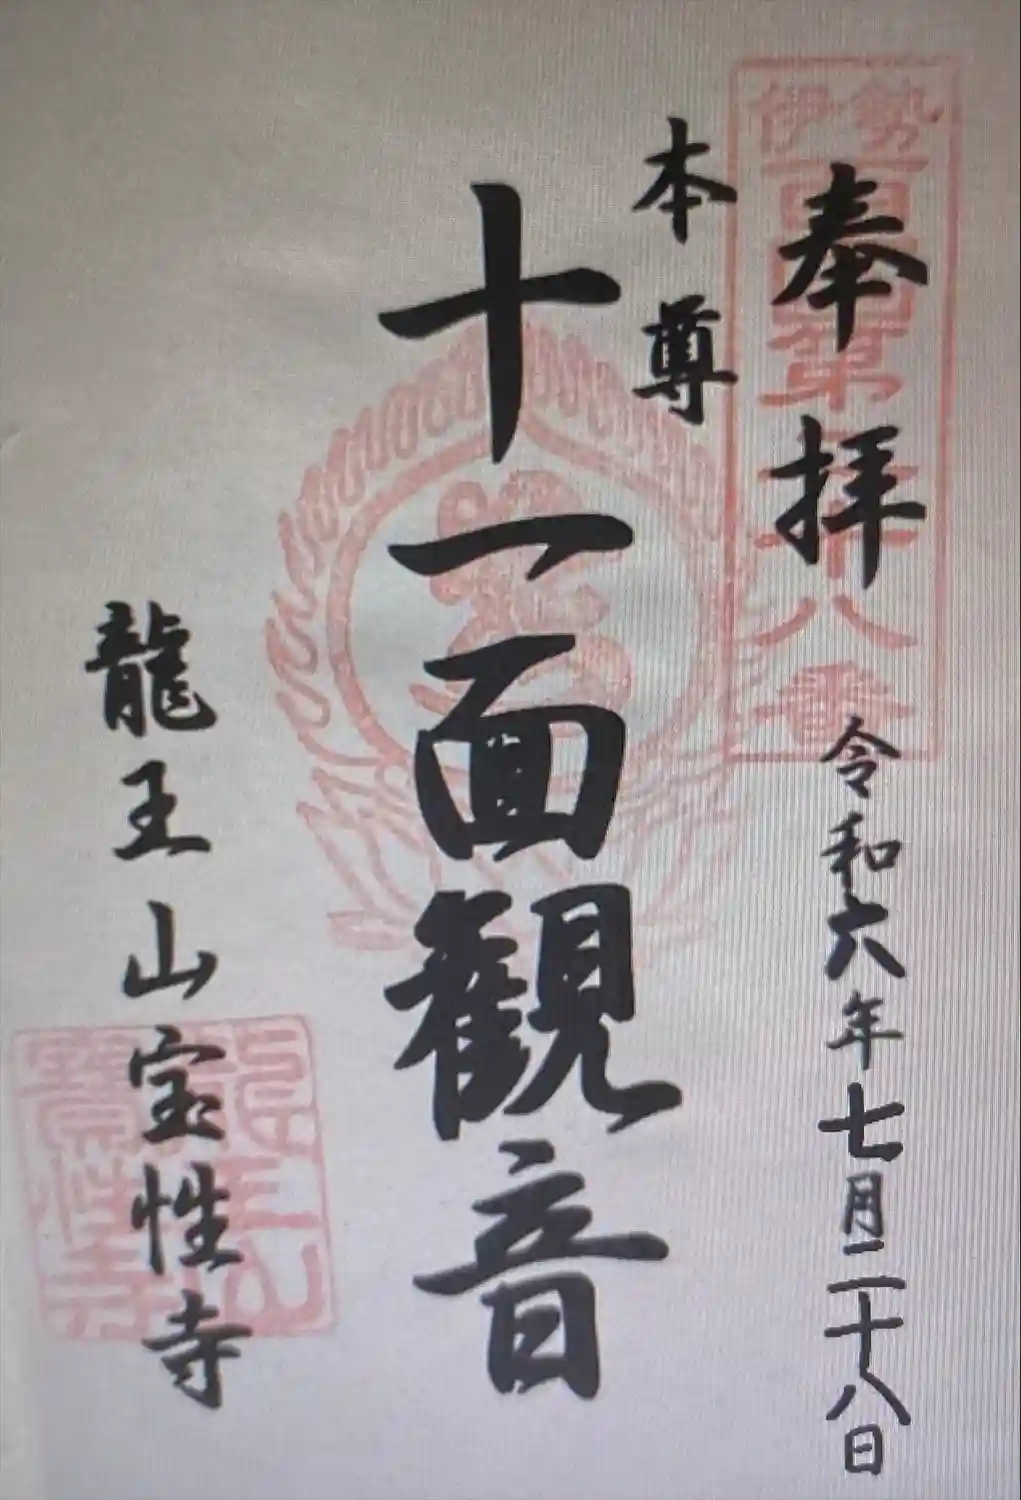 奉拝
令和六年七月二十八日
本尊
十一面観音
龍王山宝性寺
伊勢
八番
龍王山
寶性寺